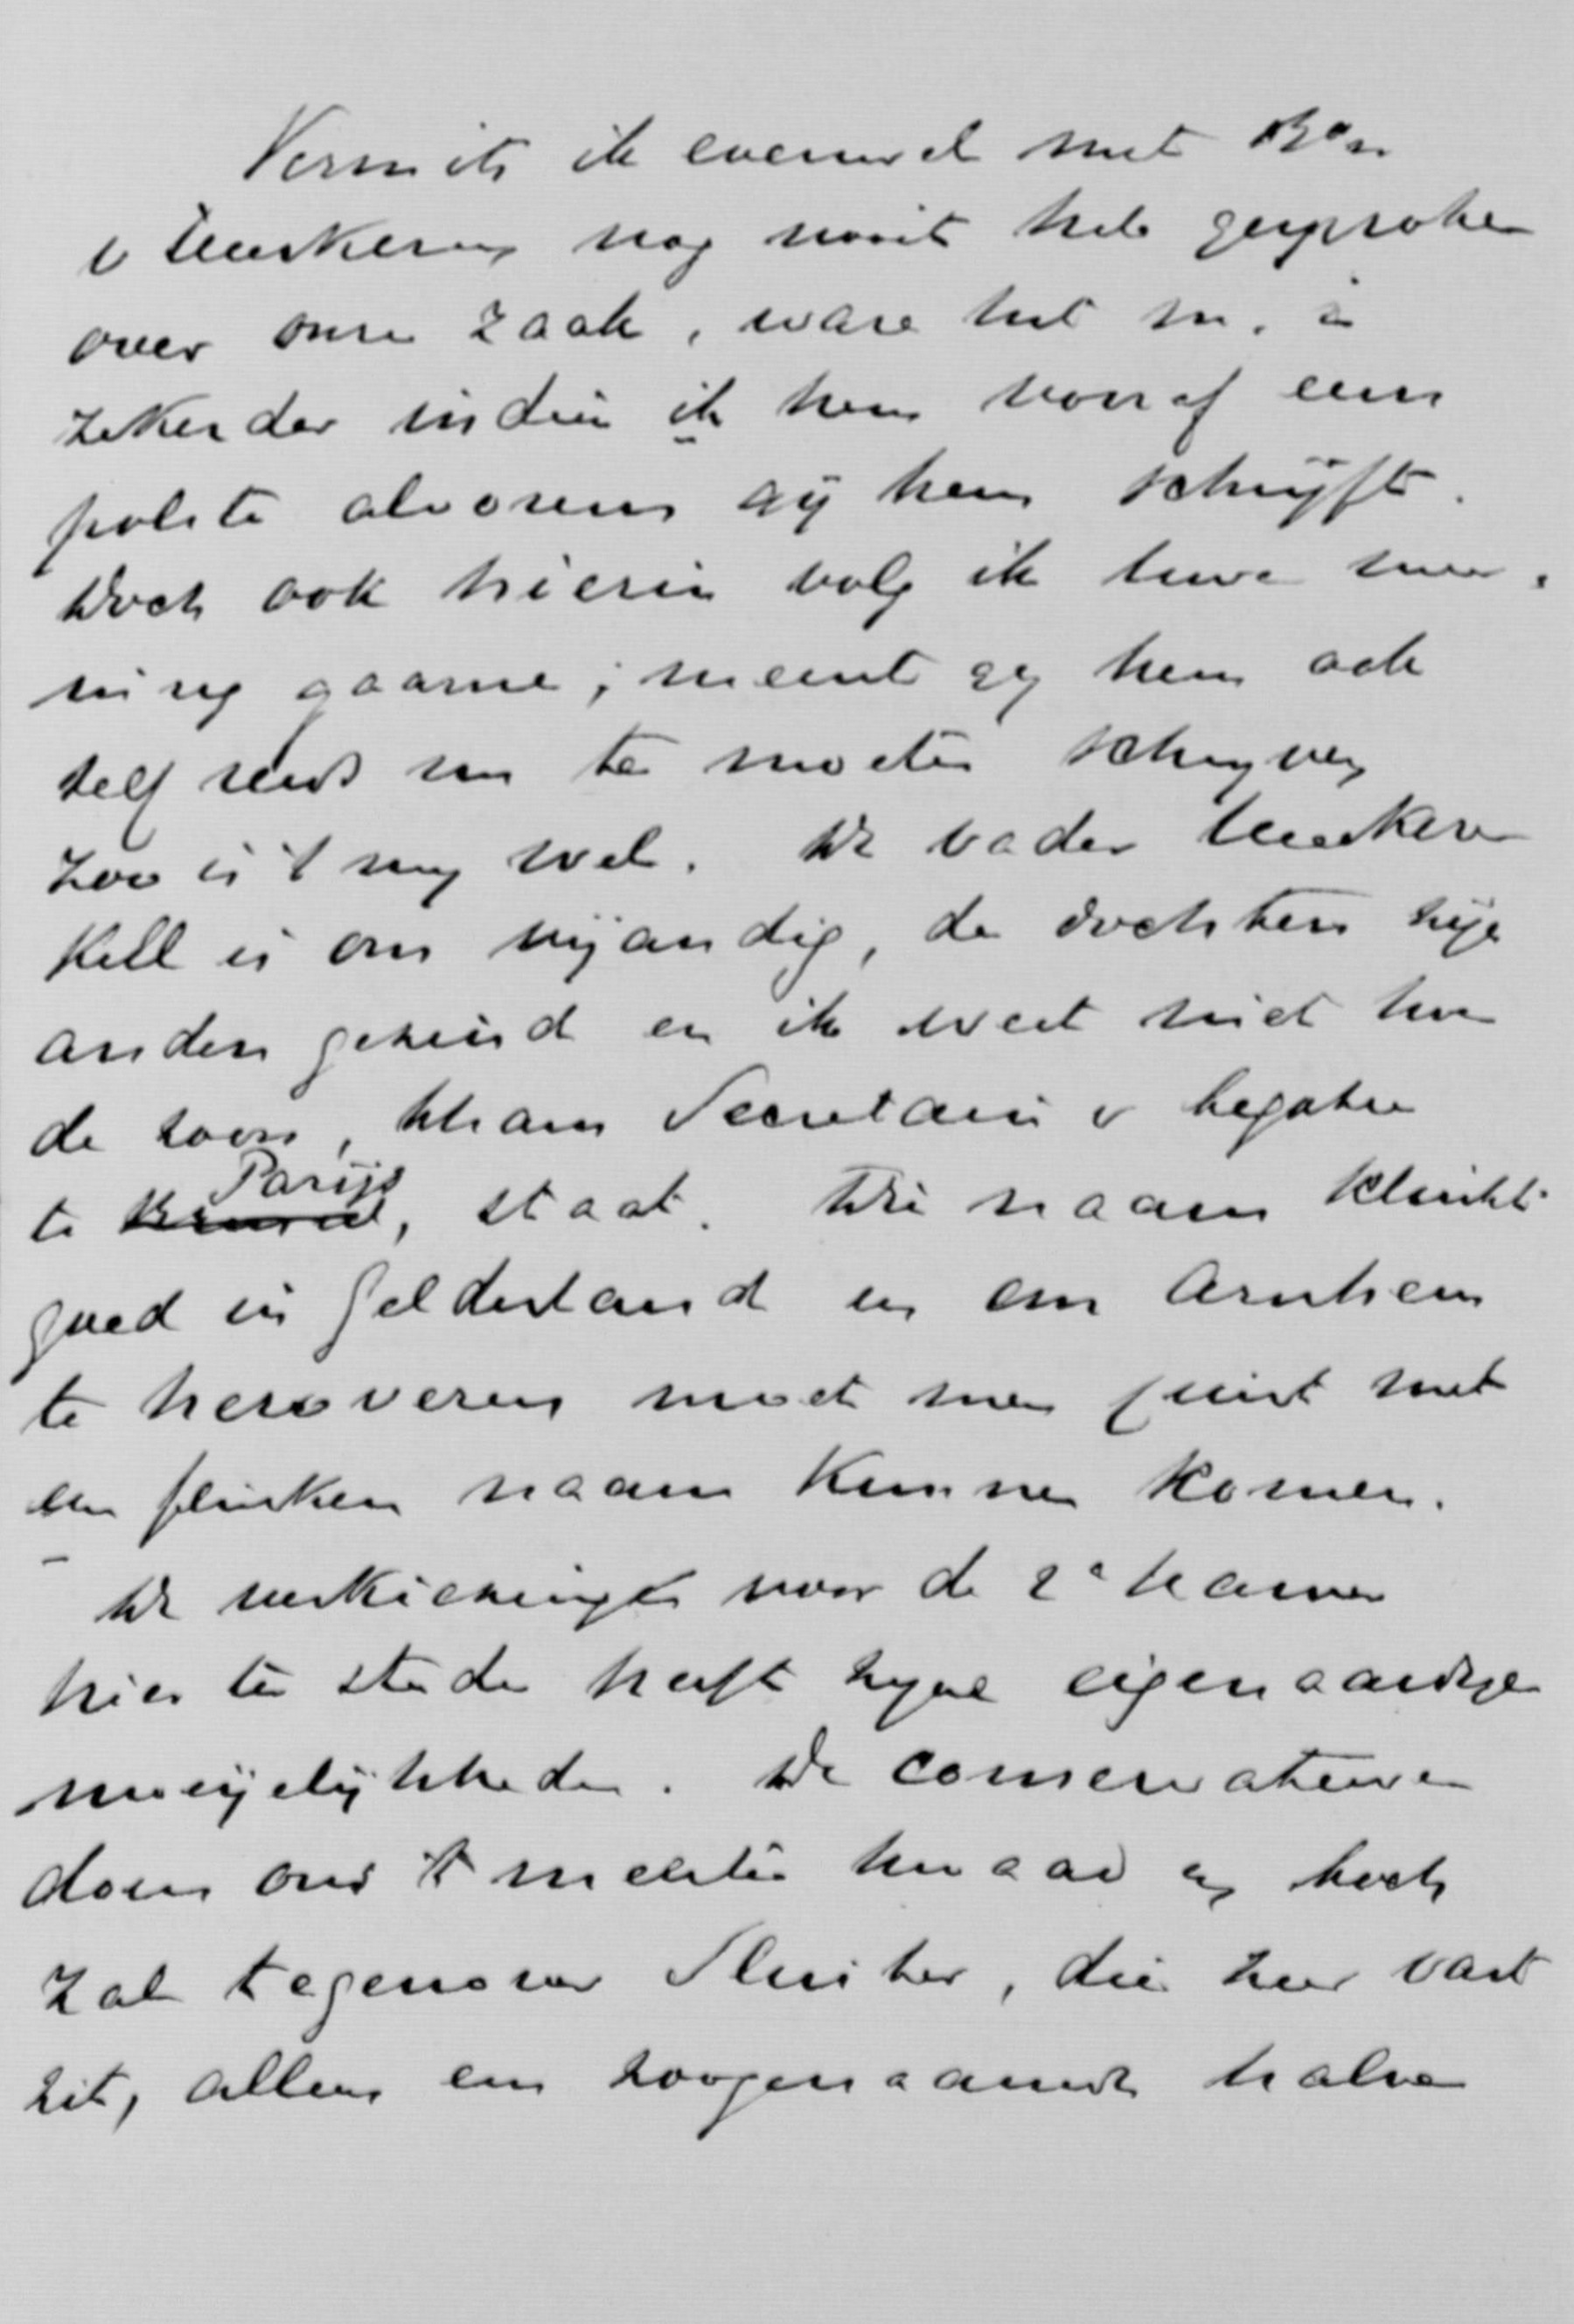 Vermits ik evenwel met Bon
v Lynkering nog nooit heb gesproken
over onze zaak, ware het m. i
zekerder indien ik hem vooraf eens
polste alvorens gij hem schrijft.
Doch ook hierin volg ik uwe mee-
ning gaarne; meent gij hem ook
zelf reeds nu te moeten schrijven
zoo is 't mij wel. De vader
Kell is ons vijandig, de dochters zijn
anders gezind en ik weet niet hoe
de zoon, thans Secretaris v legatie
te Parijs, staat. Die naam klinkt
goed in Gelderland en om Arnhem
te heroveren moet men juist met
een flinken naam kunnen komen.
De verkiezing voor de 2e Kamer
hier ter stede heeft hare eigenaardige
moeijelijkheden. De conservatieven
doen ons 't meeste kwaad en toch
zal tegenover Sluiter, die zeer vast
zit, alleen een zoogenaamde halve